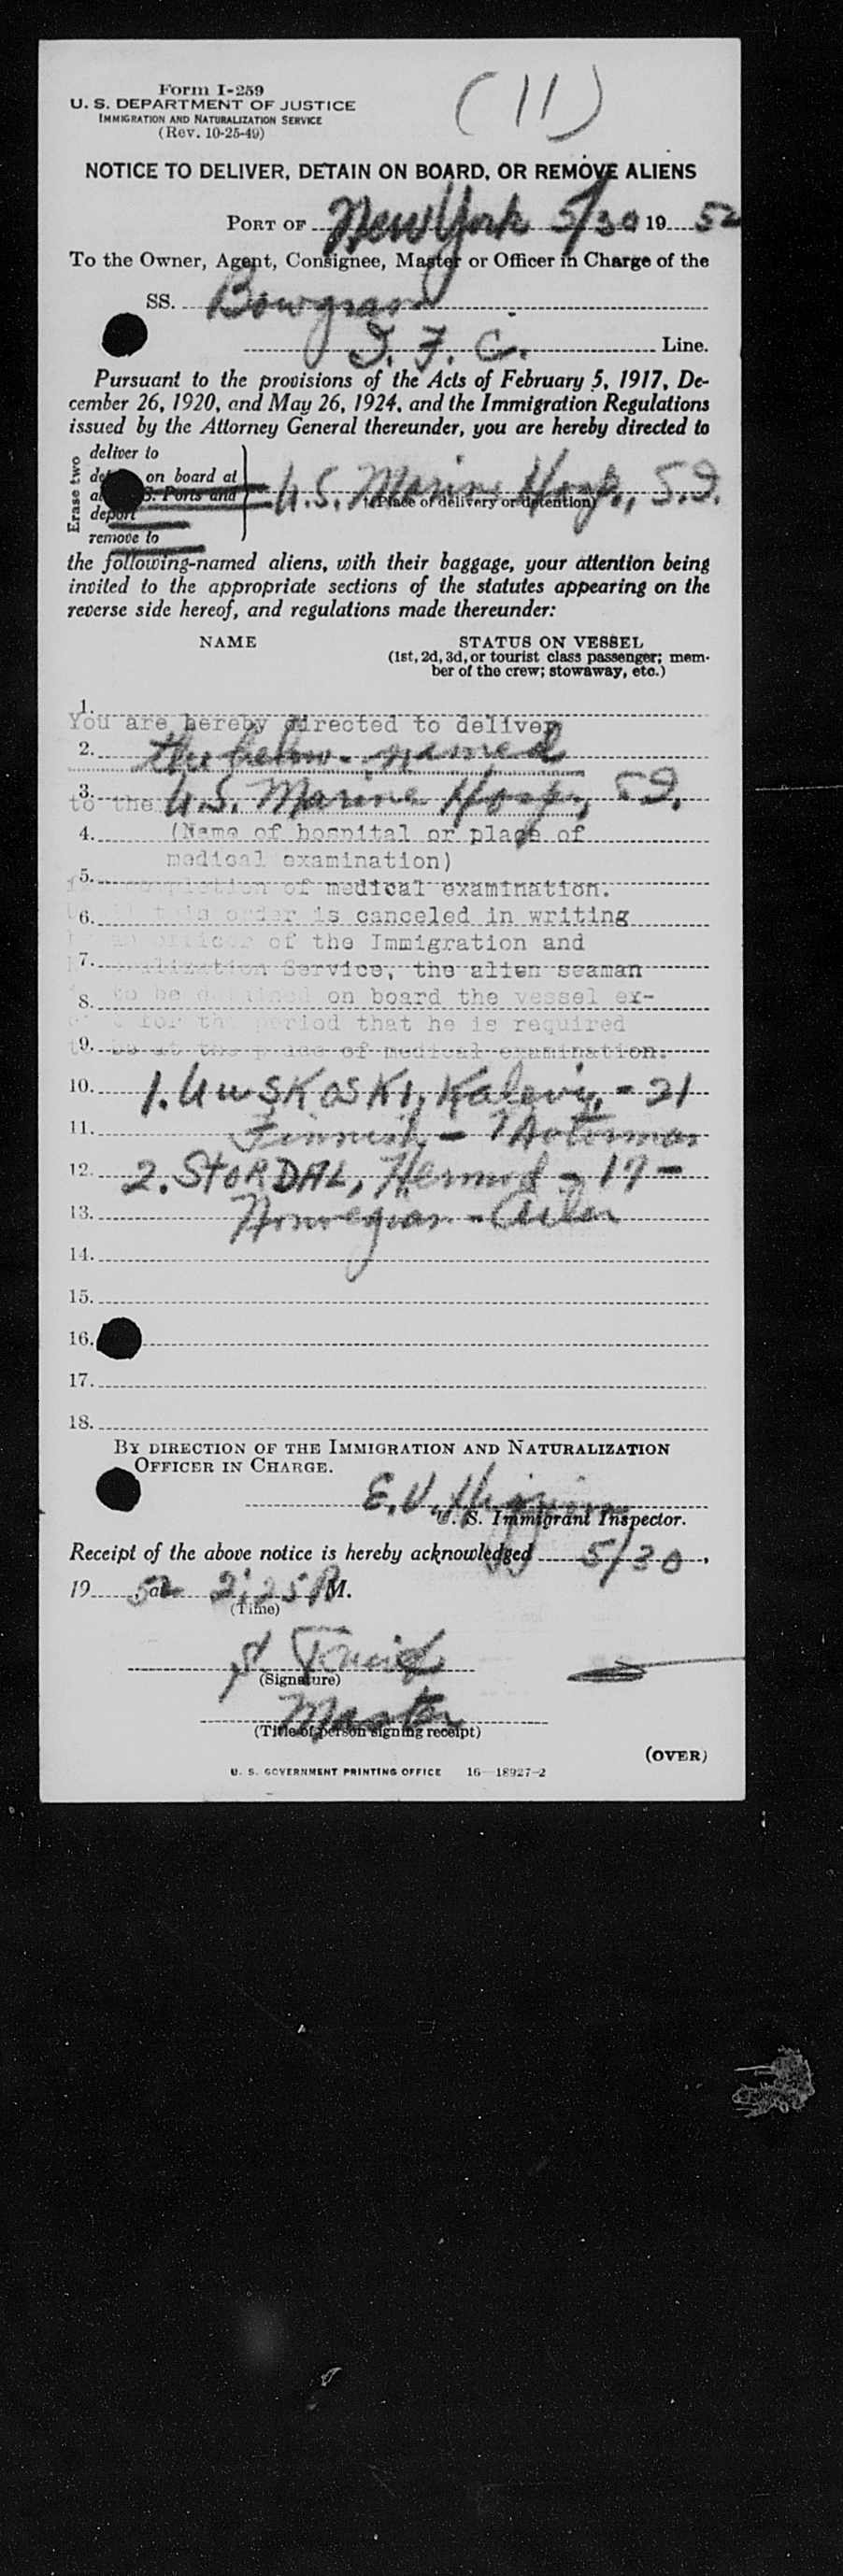 Form I-259
U. S. DEPARTMENT OF JUSTICE
IMMIGRATION AND NATURALIZATION SERVICE
(Rev. 10-25-49)
(11)
NOTICE TO DELIVER, DETAIN ON BOARD, OR REMOVE ALIENS
PORT OF New York 5/30 19 52
To the Owner, Agent, Consignee, Master or Officer in Charge of the
SS. Bowgran
I. F. C. Line.
Pursuant to the provisions of the Acts of February 5, 1917, De-
cember 26, 1920, and May 26, 1924, and the Immigration Regulations
issued by the Attorney General thereunder, you are hereby directed to
Erase two
deliver to
on board at
S. Ports and
deport
remove to
U.S. Marine Hosp., S.I.
(Place of delivery or detention)
the following-named aliens, with their baggage, your attention being
invited to the appropriate sections of the statutes appearing on the
reverse side hereof, and regulations made thereunder:
NAME STATUS ON VESSEL
(1st, 2d, 3d, or tourist class passenger; mem-
ber of the crew; stowaway, etc.)
1.
You are hereby directed to deliver
2. the below-named
3.
to the U.S. Marine Hosp., S.I.
4. (Name of hospital or place of
medical examination)
5.
completion of medical examination.
6. this order is canceled in writing
officer of the Immigration and
7. Service, the alien seaman
8. to be detained on board the vessel ex-
for the period that he is required
9.
to be at the place of medical examination.
10. 1. UUSKOSKI, Kalevi, - 21
11. Finnish -
12. 2. STORDAL, Hermod - 17 -
13. Norwegian - Oiler
14.
15.
16.
17.
18.
BY DIRECTION OF THE IMMIGRATION AND NATURALIZATION
OFFICER IN CHARGE.
E. V. Higgins
U. S. Immigrant Inspector.
Receipt of the above notice is hereby acknowledged 5/30,
19 52 at 2:25 P M.
(Time)
(Signature)
Master
(Title of person signing receipt)
(OVER)
U. S. GOVERNMENT PRINTING OFFICE 16—18927-2